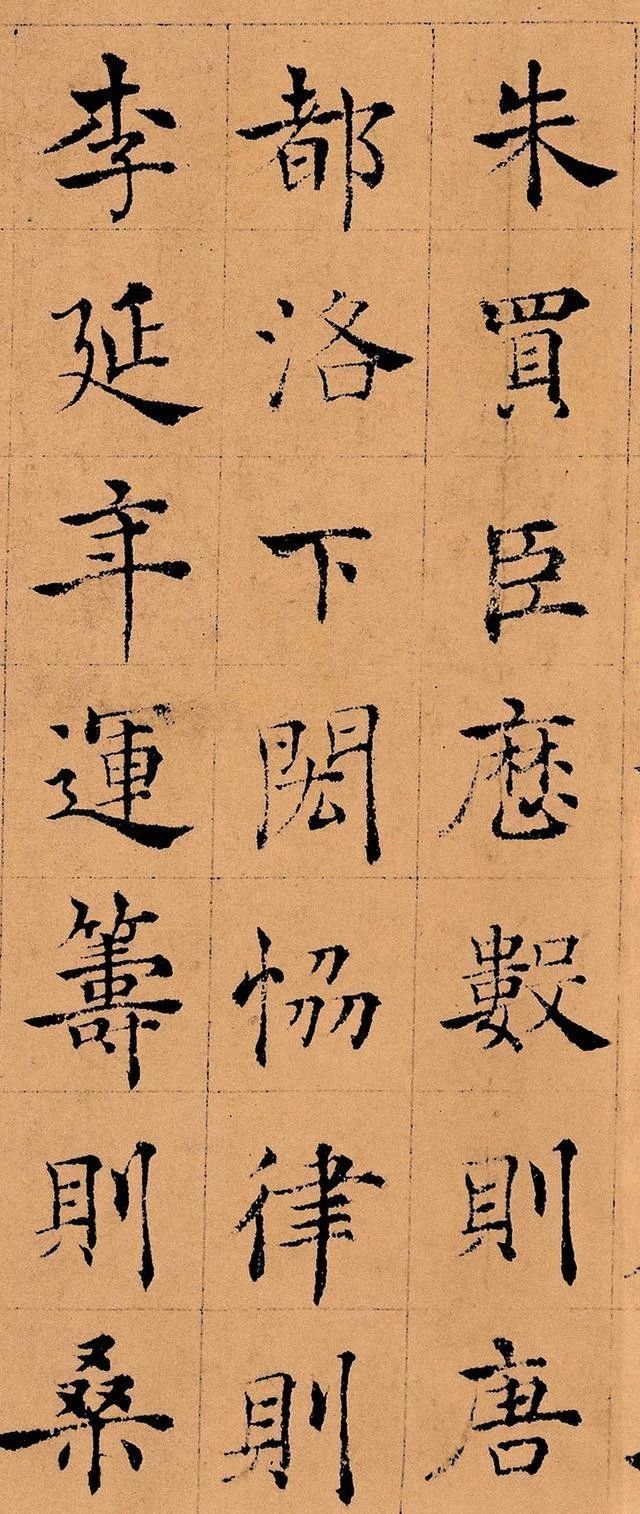 朱買臣歷數則唐
都洛下閎恊律則
李延年運籌則桑